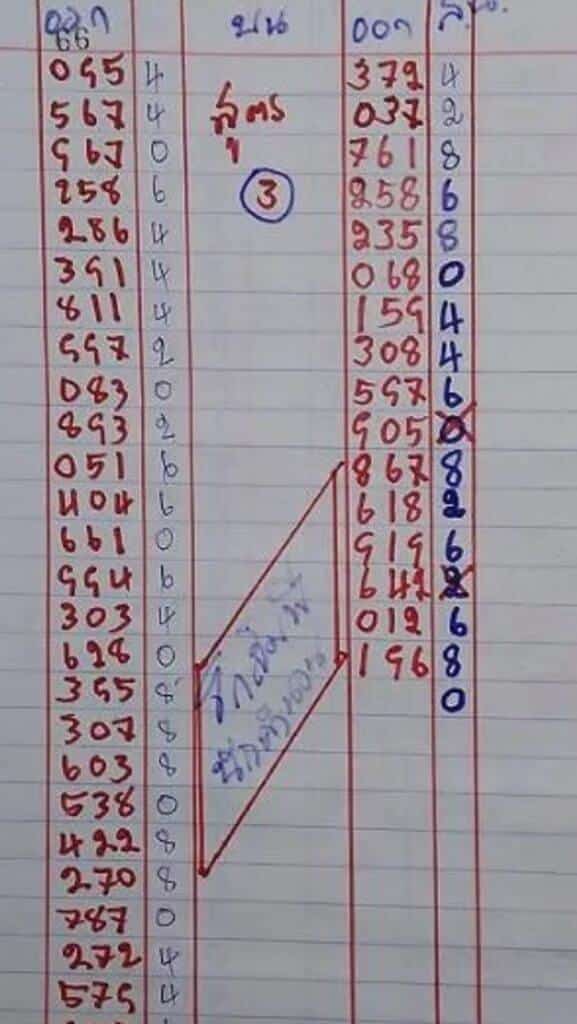 ออก บน ออก ล.
66
095 4 372 4
567 4 สูตร 037 2
967 0 761 8
258 6 3 258 6
286 4 235 8
391 4 068 0
811 4 159 4
997 2 308 4
083 0 597 6
893 2 905 0
051 6 867 8
404 6 618 2
661 0 919 6
994 6 642
303 4 012 6
628 0 196 8
395 8 0
307 8
603 8
538 0
422 8
270 8
787 0
272 4
579 4